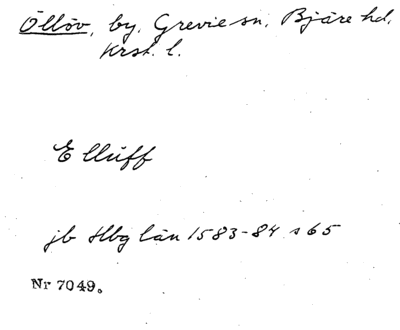 Öllöv, by, Grevie sn, Bjäre hd,
Krst. l.
Ellüff
jb Hbg län 1583-84 s 65
Nr 7049.